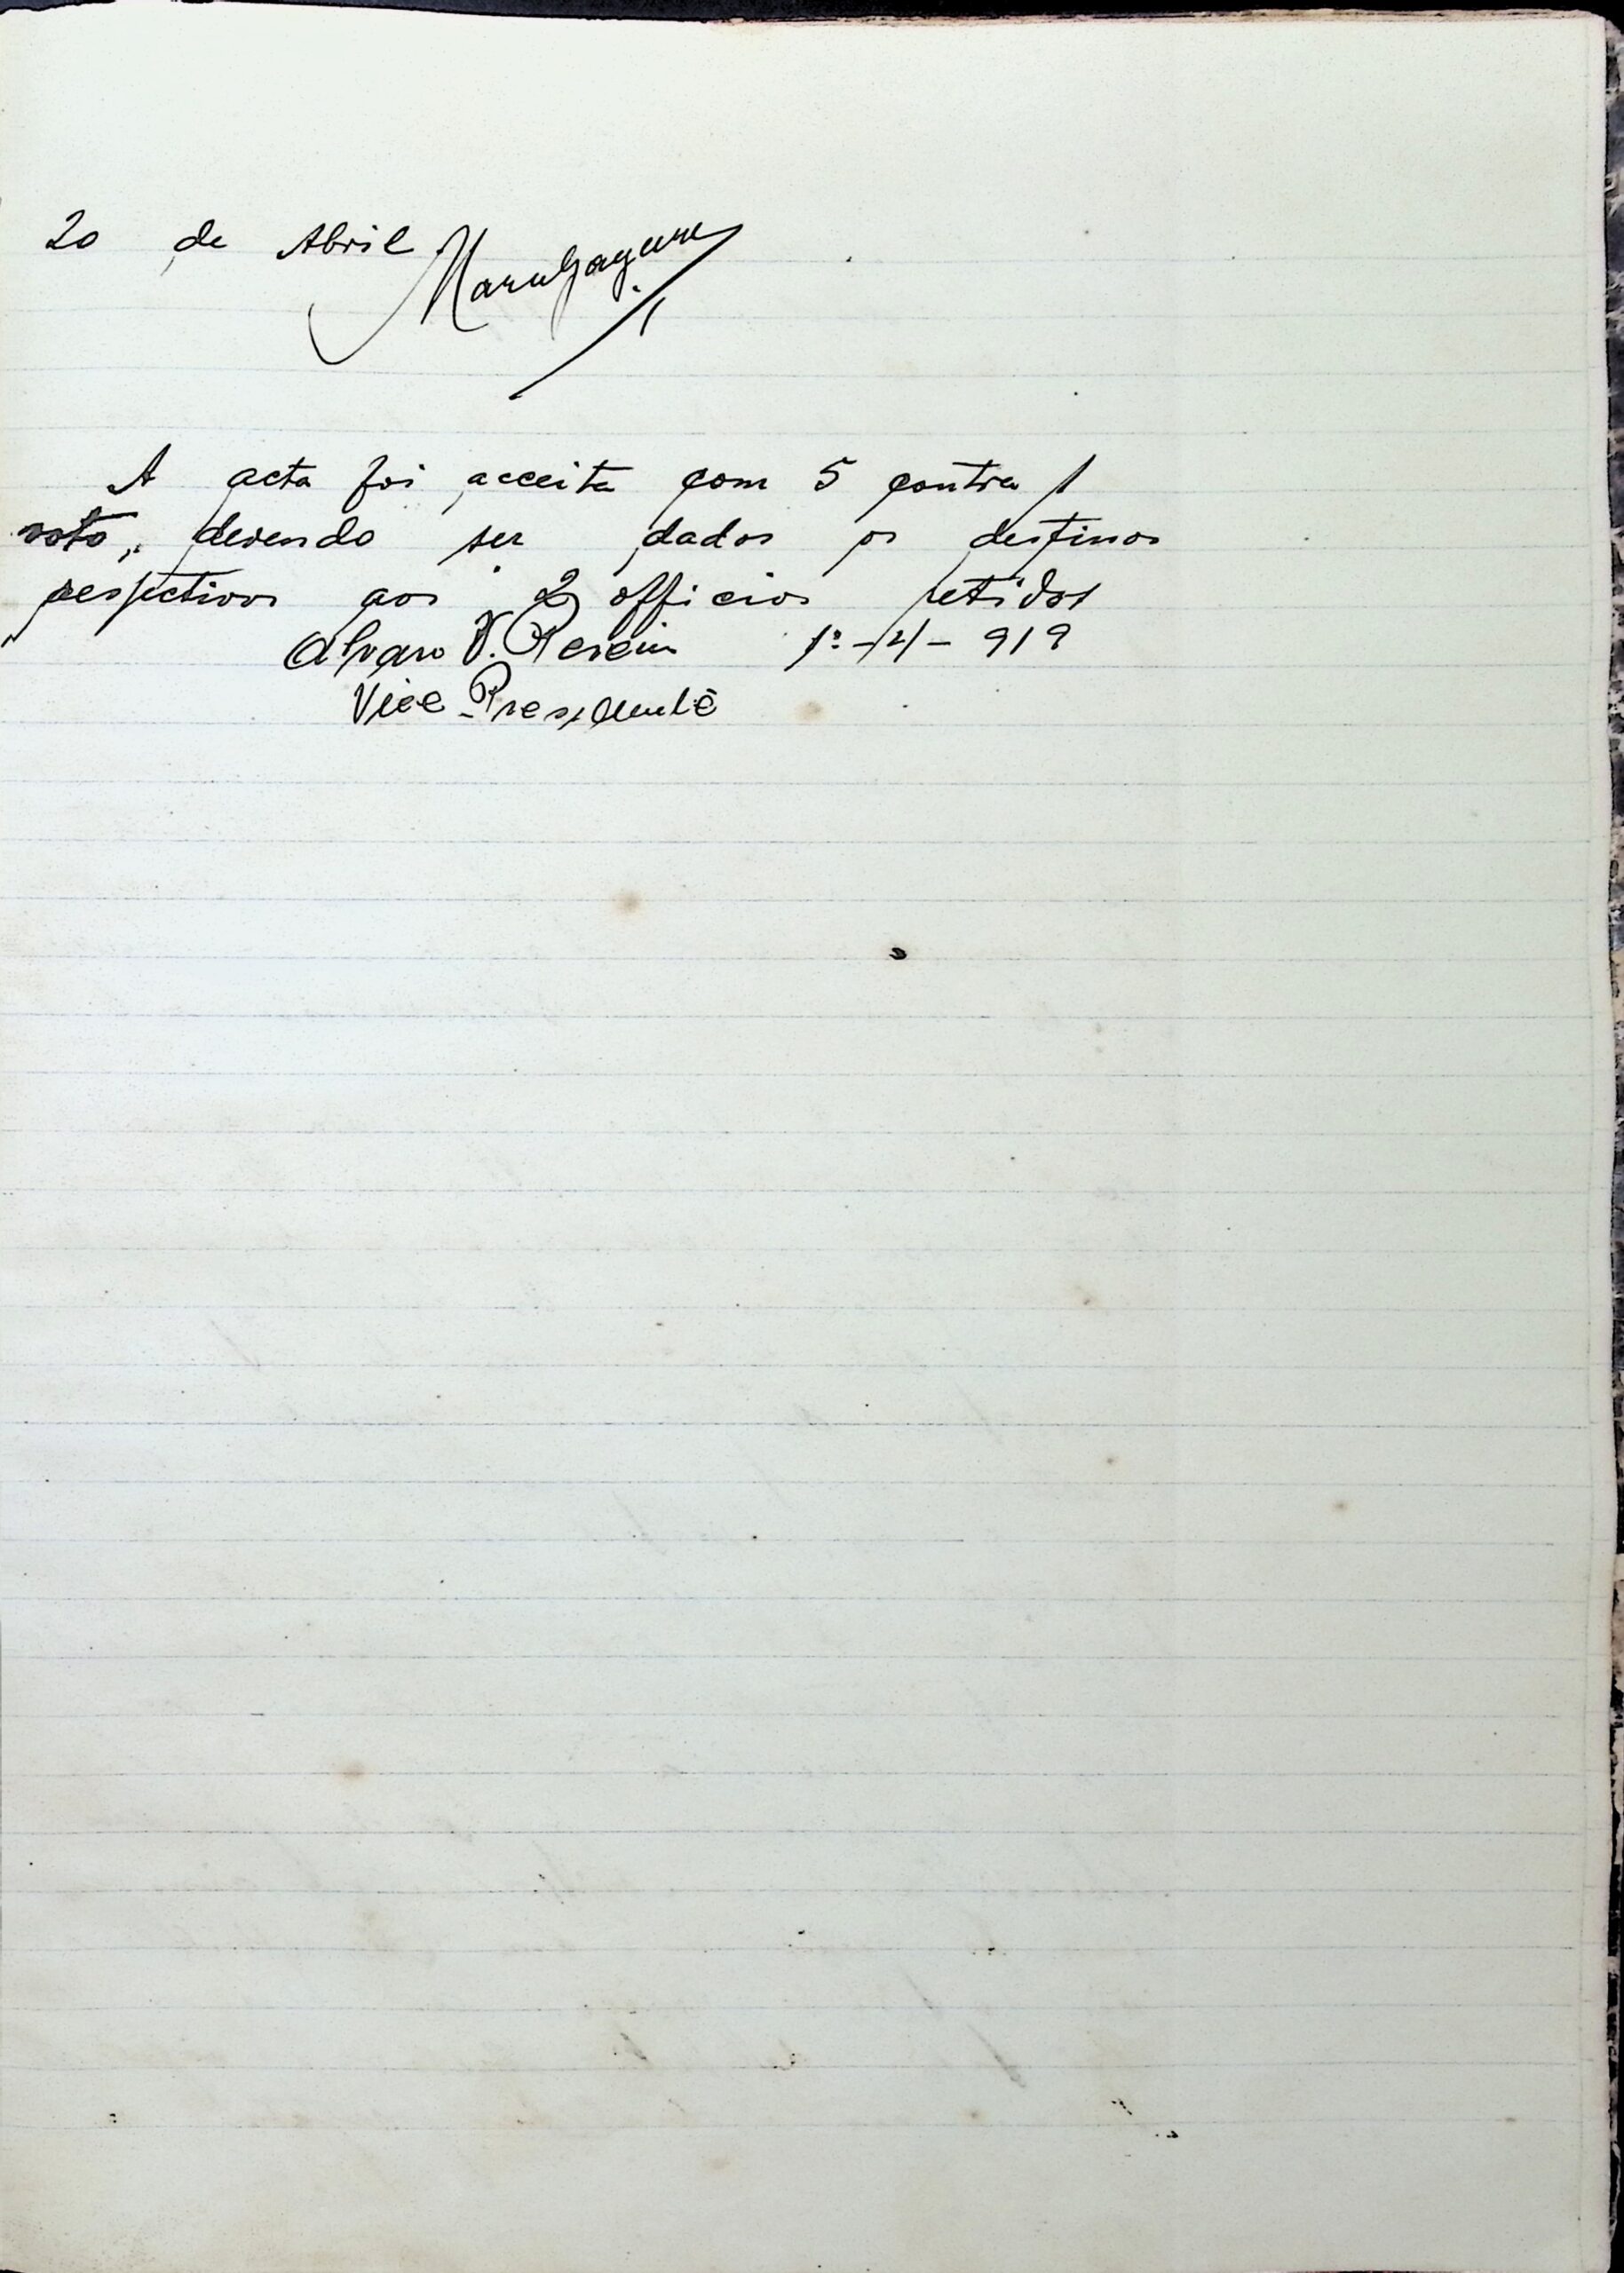 20 de Abril
A acta foi acceita com 5 contra 1
voto, devendo ser dados os destinos
respectivos aos 2 officios retidos
Alvaro V. Pereira 1º-4-919
Vice-Presidente